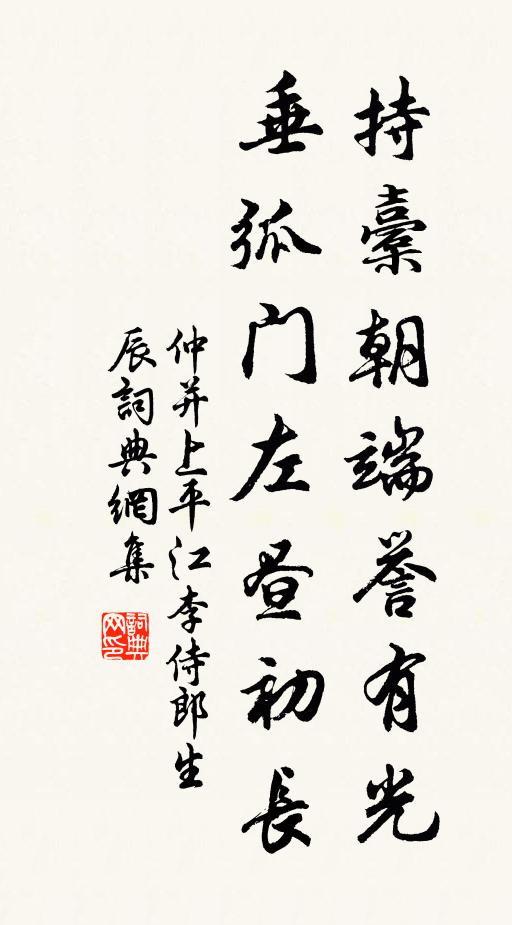 持橐朝端譽有光
垂弧門左晝初長
仲并上平江李侍郎生
辰詞典網集
詞典
网印